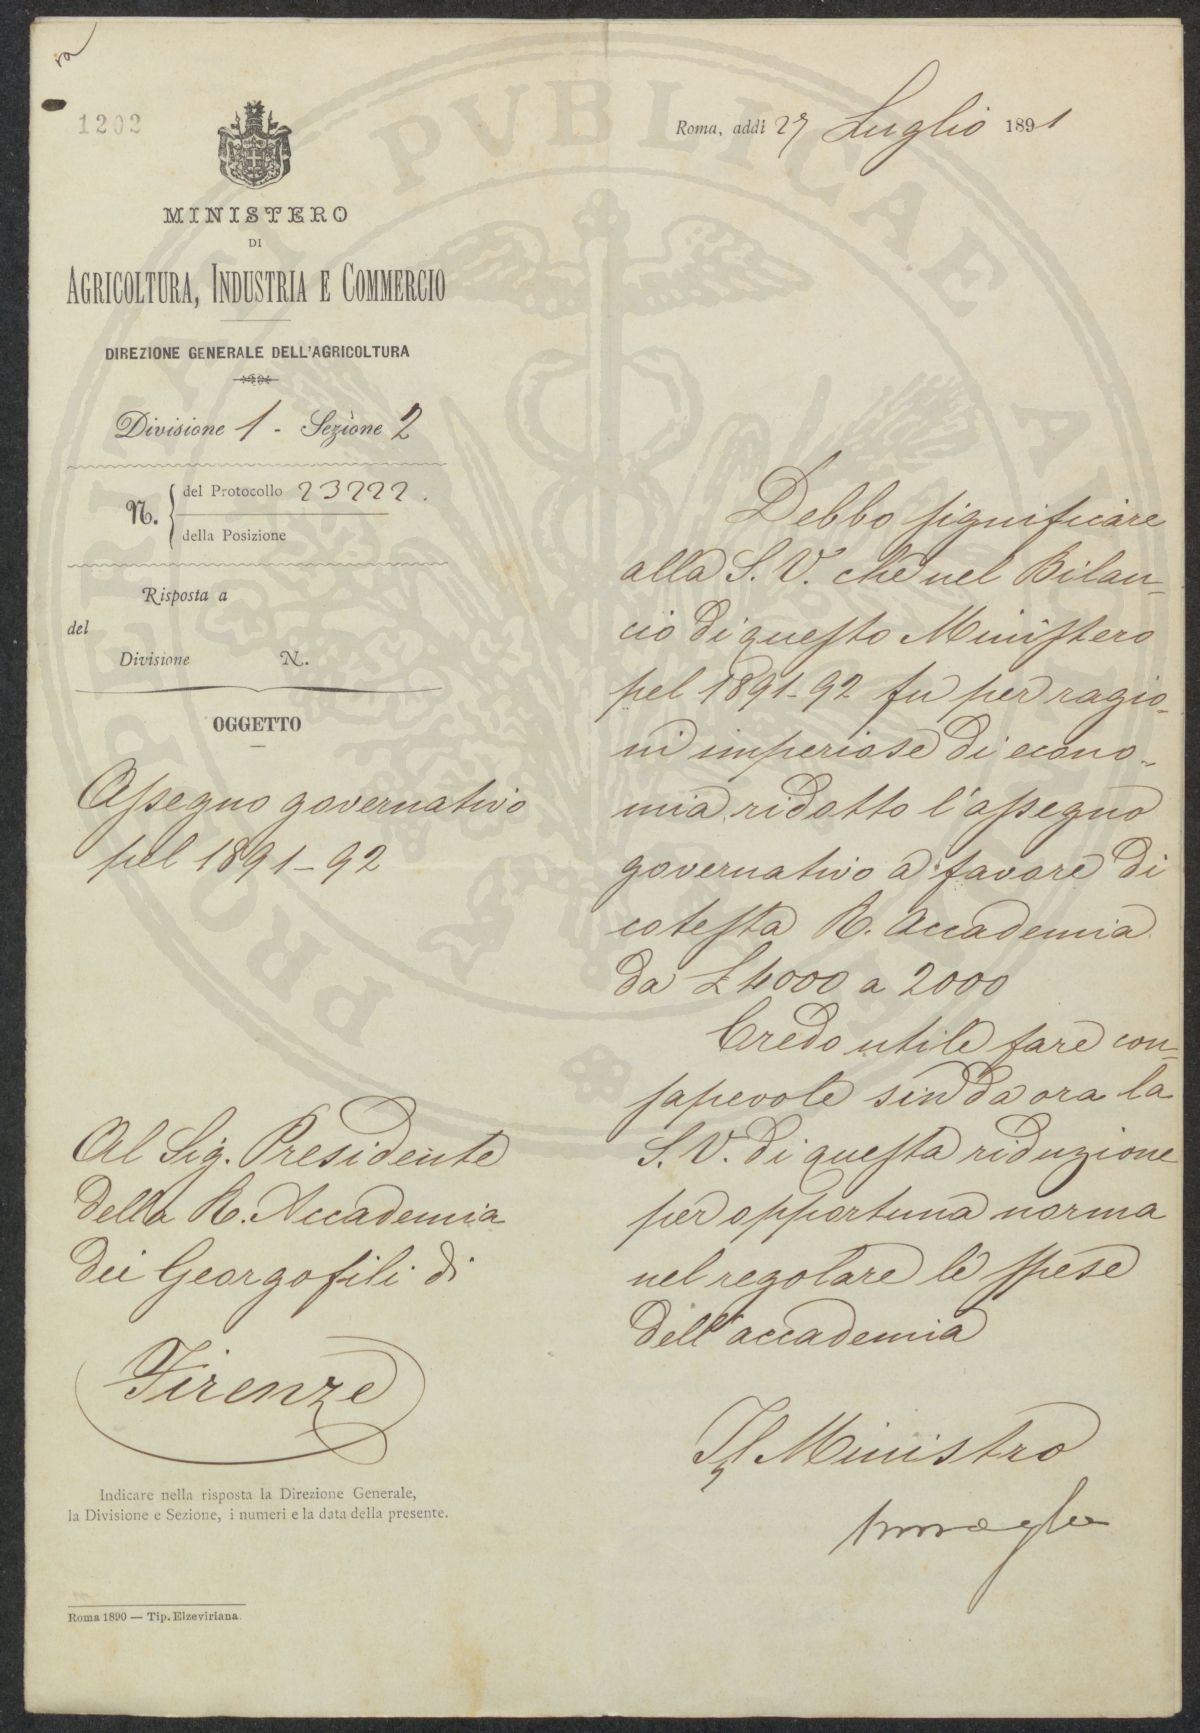 1202
MINISTERO
DI
AGRICOLTURA, INDUSTRIA E COMMERCIO
DIREZIONE GENERALE DELL'AGRICOLTURA
Divisione 1 - Sezione 2
N. del Protocollo 23222.
della Posizione
Risposta a
del
Divisione N.
OGGETTO
Assegno governativo
pel 1891-92
Al Sig. Presidente
della R. Accademia
dei Georgofili di
Firenze
Indicare nella risposta la Direzione Generale,
la Divisione e Sezione, i numeri e la data della presente.
Roma 1890 — Tip. Elzeviriana.
Roma, addì 27 Luglio 1891
Debbo significare
alla S. V. che nel Bilan-
cio di questo Ministero
pel 1891-92 fu per ragio-
ni imperiose di econo-
mia ridotto l'assegno
governativo a favore di
cotesta R. Accademia
da £ 4000 a 2000
Credo utile fare con-
sapevole sin da ora la
S. V. di questa riduzione
per opportuna norma
nel regolare le spese
dell'accademia
Il Ministro
PROSPERITATI PUBLICAE AUGENDAE